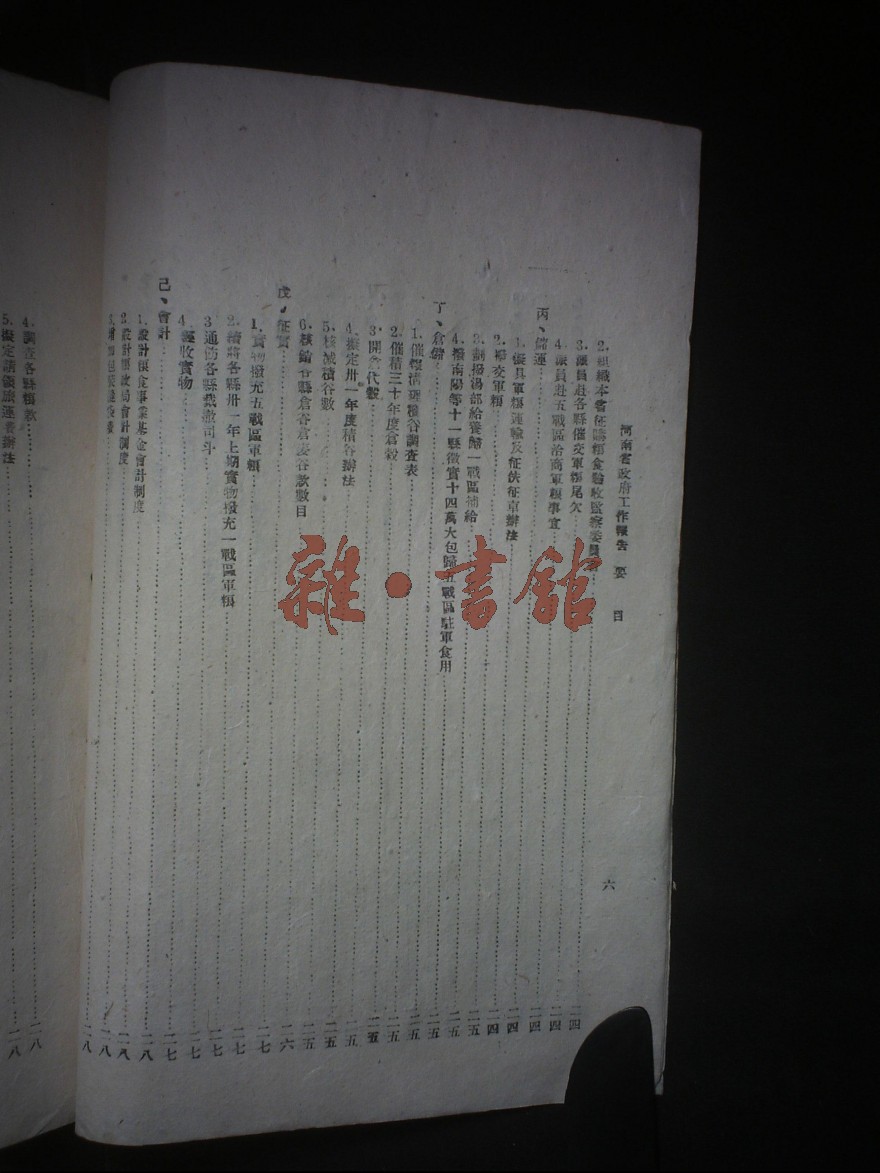 河南省政府工作報告 要目 六
2.組織本省征購糧食驗收監察委員 二四
3.派員赴各縣催交軍糧尾欠 二四
4.派員赴五戰區洽商軍糧事宜 二四
丙、儲運 二四
1.擬具軍糧運輸及征伕征車辦法 二四
2.掃交軍糧 二四
3.劃撥湯部給養歸一戰區補給 二五
4.撥南陽等十一縣徵實十四萬大包歸五戰區駐軍食用 二五
丁、倉儲 二五
1.催報清理積谷調查表 二五
2.催積三十年度倉穀 二五
3.開 代穀 二五
4.擬定卅一年度積谷辦法 二五
5.核減積谷數 二五
6.核銷各縣倉谷倉麥谷款數目 二五
戊、征實 二六
1.實物撥充五戰區軍糧 二七
2.續將各縣卅一年上期實物撥充一戰區軍糧 二七
3.通飭各縣裁撤司斗 二七
4.經收實物 二七
己、會計 二七
1.設計糧食事業基金會計制度 二八
2.設計糧政局會計制度 二八
3. 二八
4.調查各縣糧款 二八
5.擬定請領旅運費辦法 二八
雜·書館